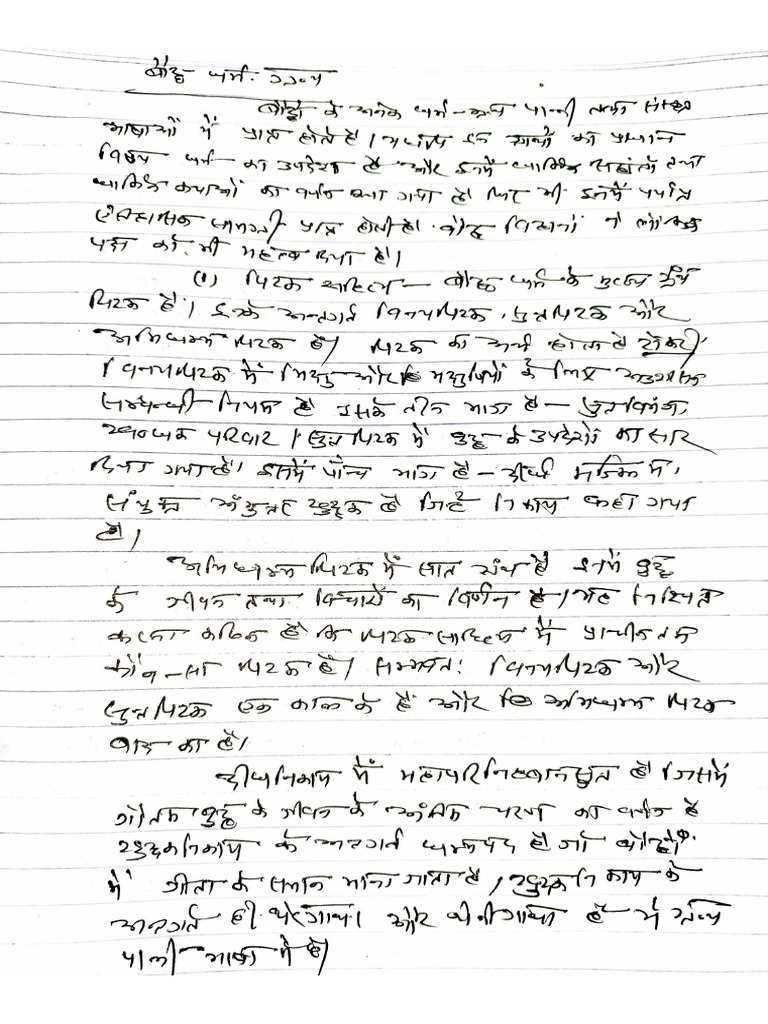 बौद्ध धर्म-ग्रन्थ
बौद्धों के अनेक धर्म-ग्रन्थ पाली तथा संस्कृत
भाषाओं में प्राप्त होते है। यद्यपि इन ग्रन्थों का प्रधान
विषय धर्म का उपदेश है और इनमें धार्मिक तथा
धार्मिक कथाओं का वर्णन किया गया है फिर भी इनमें पर्याप्त
ऐतिहासिक सामग्री प्राप्त होती है। बौद्ध विद्वानों ने लौकिक
पक्ष को भी महत्व दिया है।
(1) पिटक साहित्य - बौद्ध धर्म के मुख्य ग्रंथ
पिटक है। इनके अन्तर्गत विनयपिटक, सुत्तपिटक और
अभिधम्म पिटक है। पिटक का अर्थ होता है टोकरी।
विनयपिटक में भिक्षु और भिक्षुणियों के लिए अनुशासन
सम्बन्धी नियम है इसके तीन भाग है - सुत्तविभंग,
खन्धक परिवार। सुत्तपिटक में बुद्ध के उपदेशों का सार
दिया गया है। इसमें पाँच भाग है - दीर्घ मज्झिम,
संयुक्त अंगुत्तर खुद्दक है जिन्हें निकाय कहा गया
है।
अभिधम्म पिटक में सात ग्रंथ है इनमें बुद्ध
के जीवन तथा विचारों का वर्णन है। यह निश्चित
करना कठिन है कि पिटक साहित्य में प्राचीनतम
कौन-सा पिटक है। सम्भवतः विनयपिटक और
सुत्तपिटक एक काल के है और अभिधम्म पिटक
बाद का है।
दीघनिकाय में महापरिनिब्बानसुत्त है जिसमें
गौतम बुद्ध के जीवन के अंतिम चरण का वर्णन है
खुद्दकनिकाय के अन्तर्गत धम्मपद है जो बौद्धों
में गीता के समान माना जाता है, खुद्दकनिकाय के
अन्तर्गत ही थेरगाथा और थेरीगाथा है ये ग्रन्थ
पाली भाषा में है।